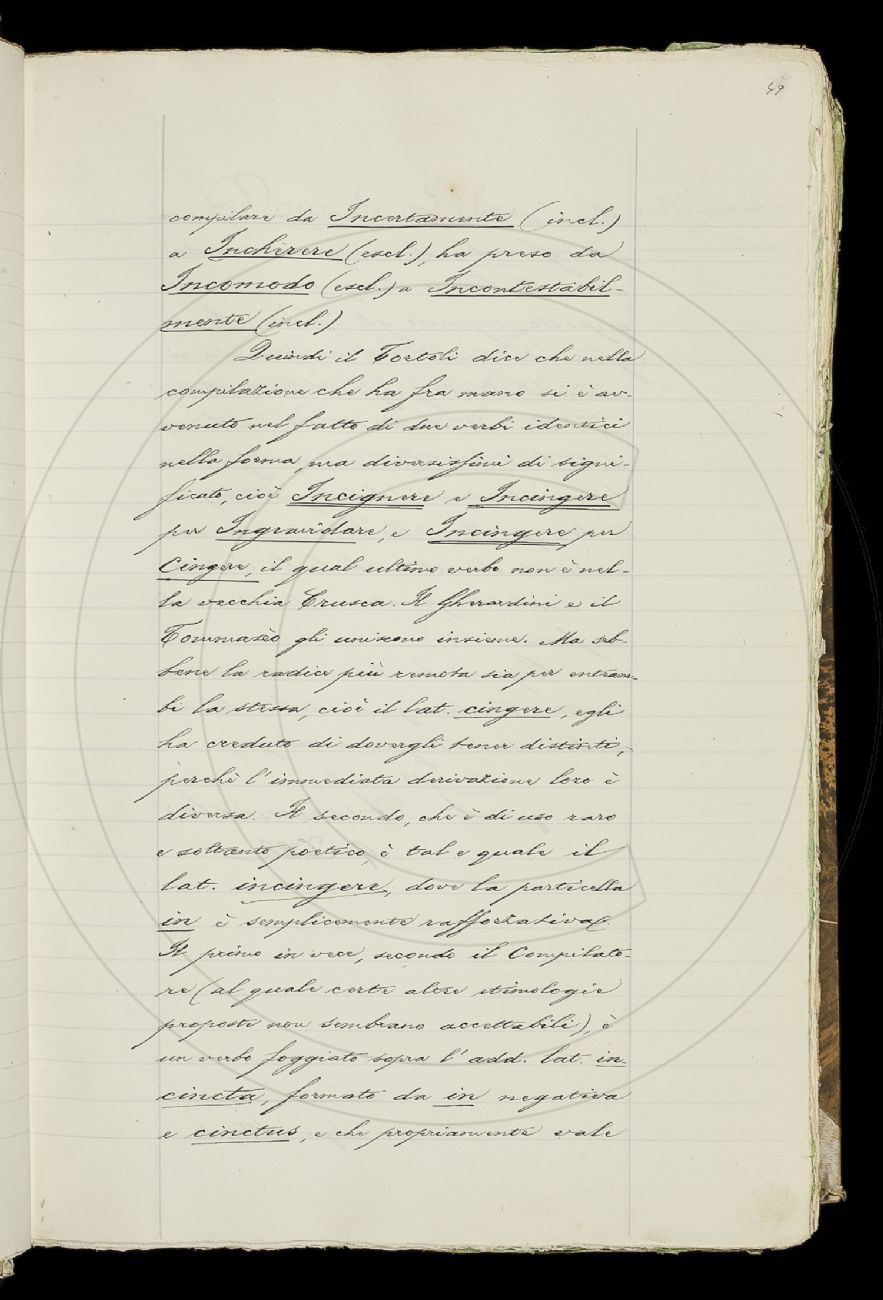 49
compilare da Incertamente (incl.)
a Inchirere (escl.), ha preso da
Incomodo (escl.) a Incontestabil-
mente (incl.).
Quindi il Tortoli dice che nella
compilazione che ha fra mano si è av-
venuto nel fatto di due verbi identici
nella forma, ma diversissimi di signi-
ficato, cioè Incignere e Incingere
per Ingravidare, e Incingere per
Cingere, il qual ultimo verbo non è nel-
la vecchia Crusca. Il Gherardini e il
Tommasèo gli uniscono insieme. Ma seb-
bene la radice più remota sia per entram-
bi la stessa, cioè il lat. cingere, egli
ha creduto di dovergli tener distinti,
perchè l'immediata derivazione loro è
diversa. Il secondo, che è di uso raro
e soltanto poetico, è tal e quale il
lat. incingere, dove la particella
in è semplicemente rafforzativa.
Il primo in vece, secondo il Compilato-
re (al quale certe altre etimologie
proposte non sembrano accettabili), è
un verbo foggiato sopra l'add. lat. in-
cincta, formato da in negativa
e cinctus, e che propriamente vale